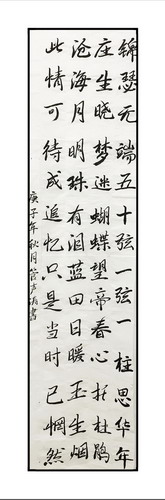 锦瑟无端五十弦一弦一柱思华年
庄生晓梦迷蝴蝶望帝春心托杜鹃
沧海月明珠有泪蓝田日暖玉生烟
此情可待成追忆只是当时已惘然
庚子年秋月管书